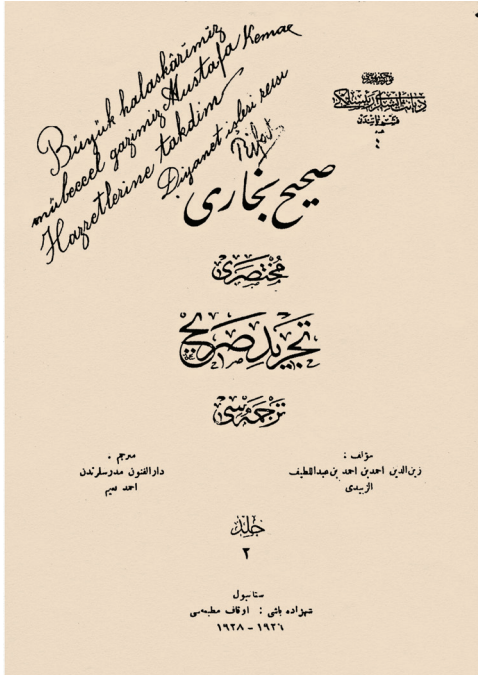 Büyük halaskârımız
mübeccel gazimiz Mustafa Kemal
Hazretlerine takdim
Diyanet işleri reisi
Rifat
صحیح بخاری
مختصری
تجرید صریح
ترجمه‌سی
مؤلف :
زین‌الدین احمد بن احمد بن عبداللطیف
الزبیدی
مترجم :
دارالفنون مدرسلرندن
احمد نعیم
جلد
۲
ستانبول
شهزاده باشی : اوقاف مطبعه‌سی
۱۹۲۸ – ۱۹۲٦